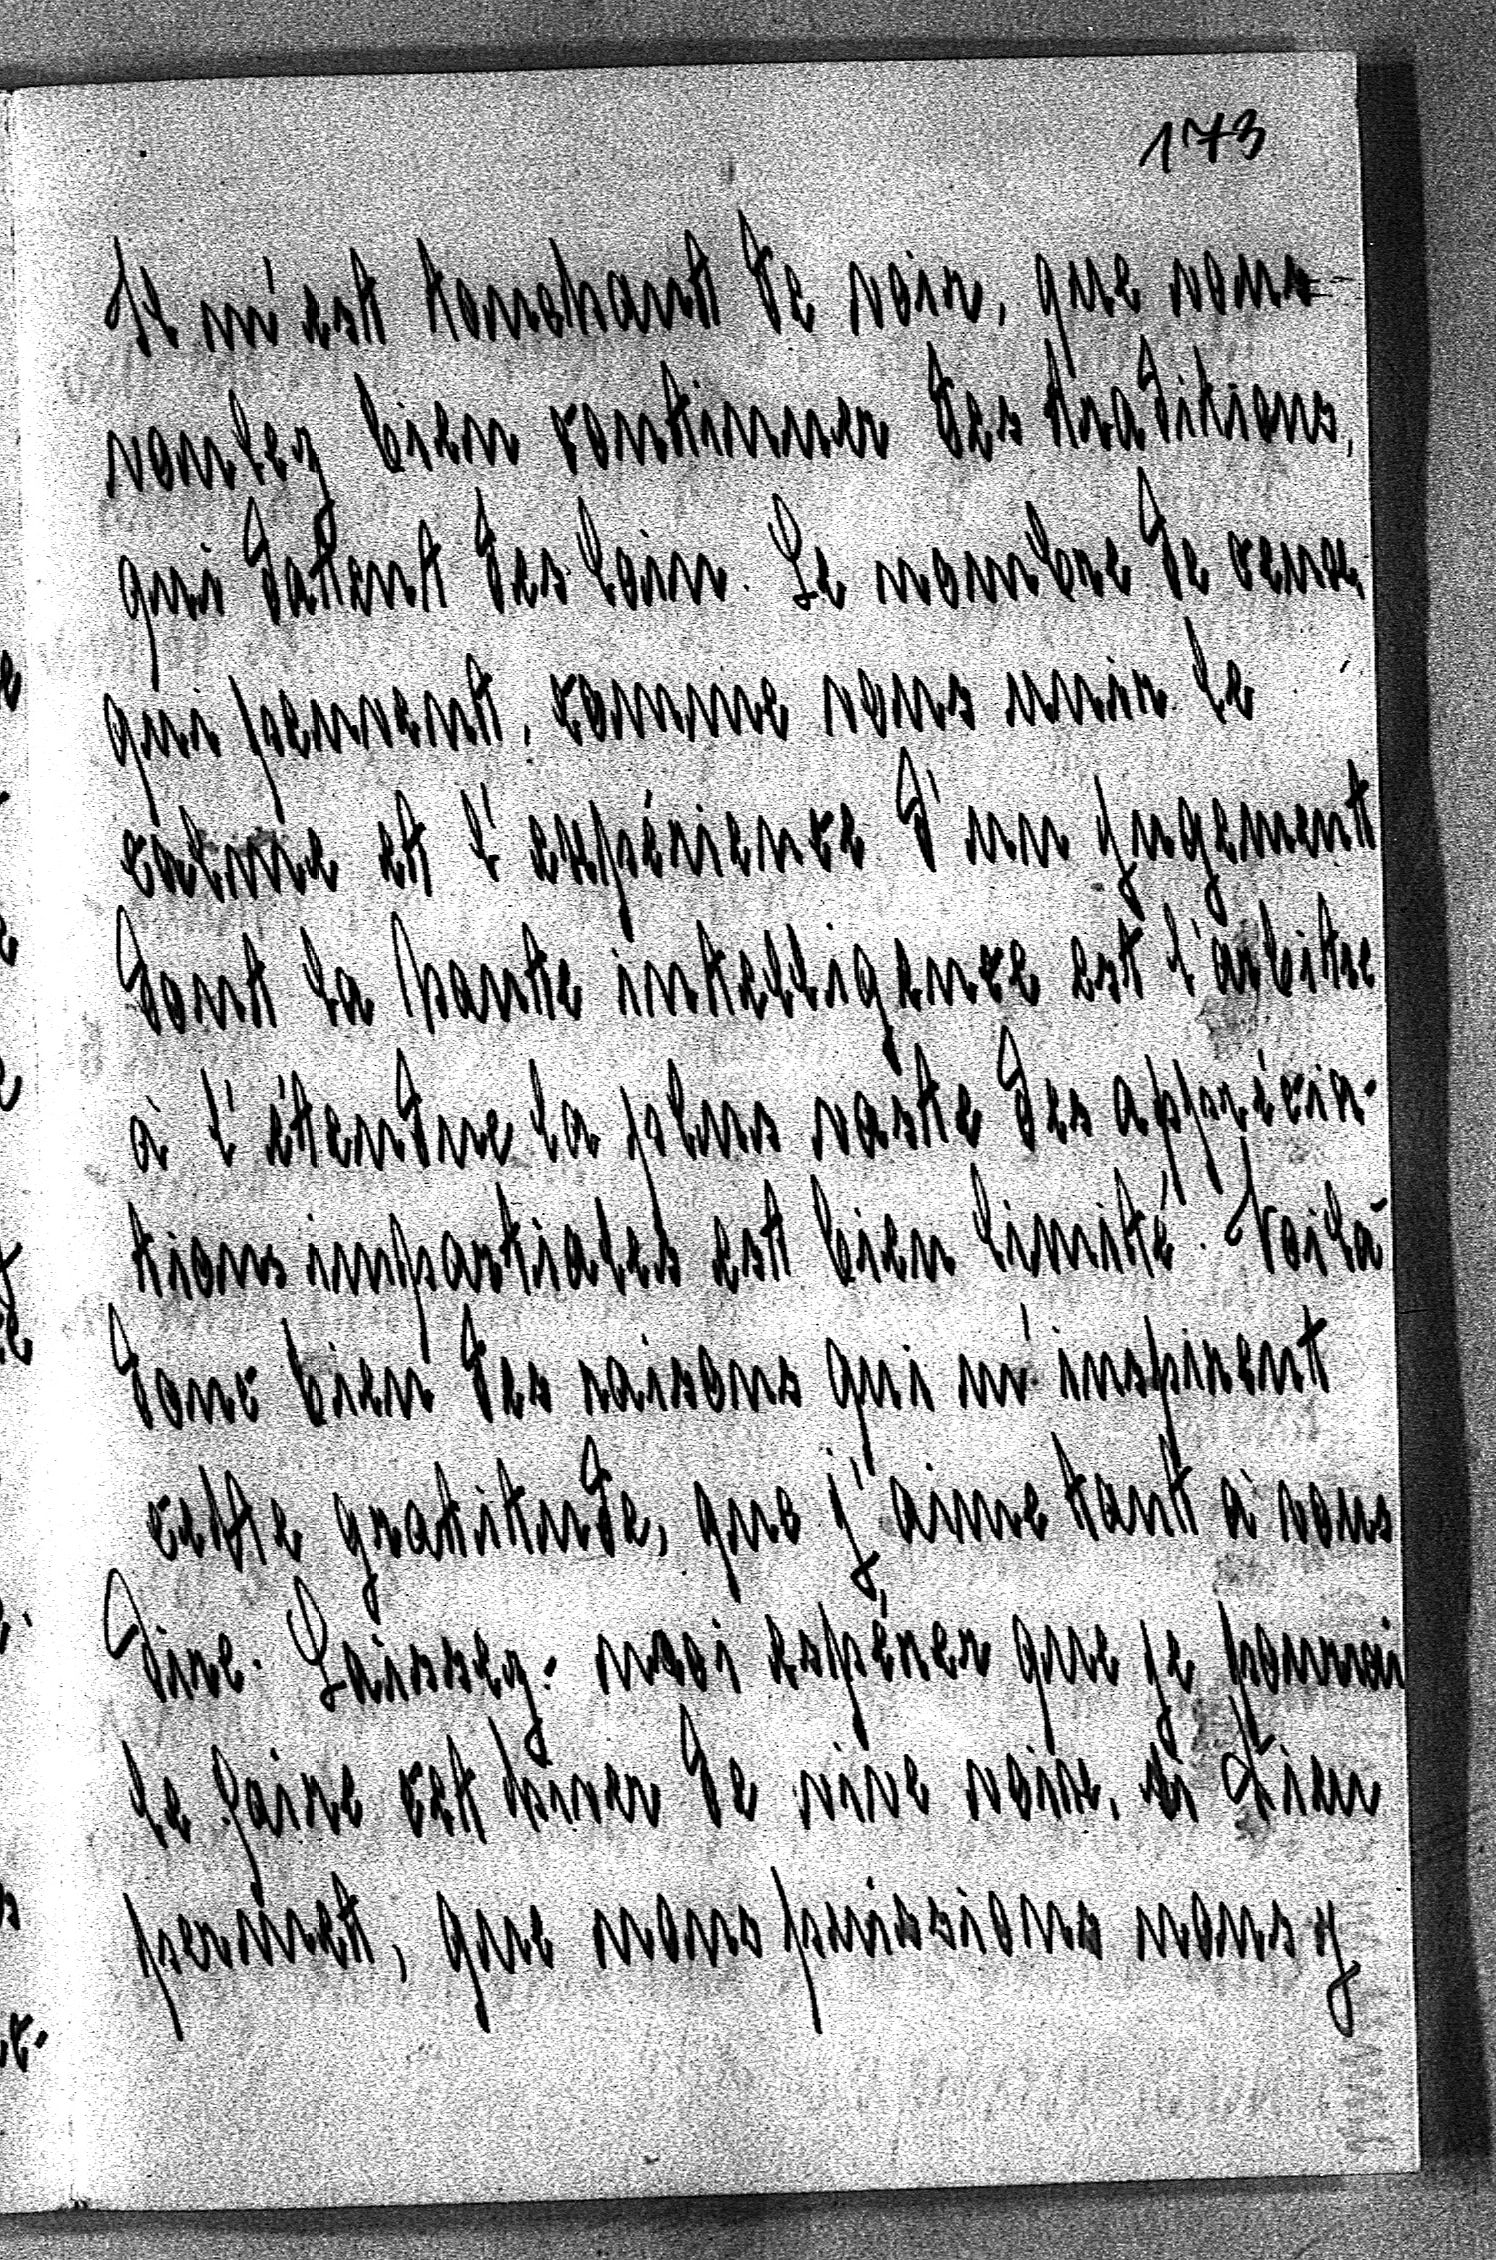 173
Il m'est touchant de voir, que vous
voulez bien continuer des traditions,
qui datent des loin. Le nombre de ceux,
qui peuvent, comme vous unir le
calme et l'expérience d'un jugement
dont la haute intelligence est l'arbitre
à l'étendue la plus vaste des apprécia-
tions impartiales est bien limité. Voilà
donc bien des raisons qui m'inspirent
cette gratitude, que j'aime tant à vous
dire. Laissez-moi espérer que je pourrai
le faire cet hiver de vive voix, si Dieu
permet, que nous puissions nous y